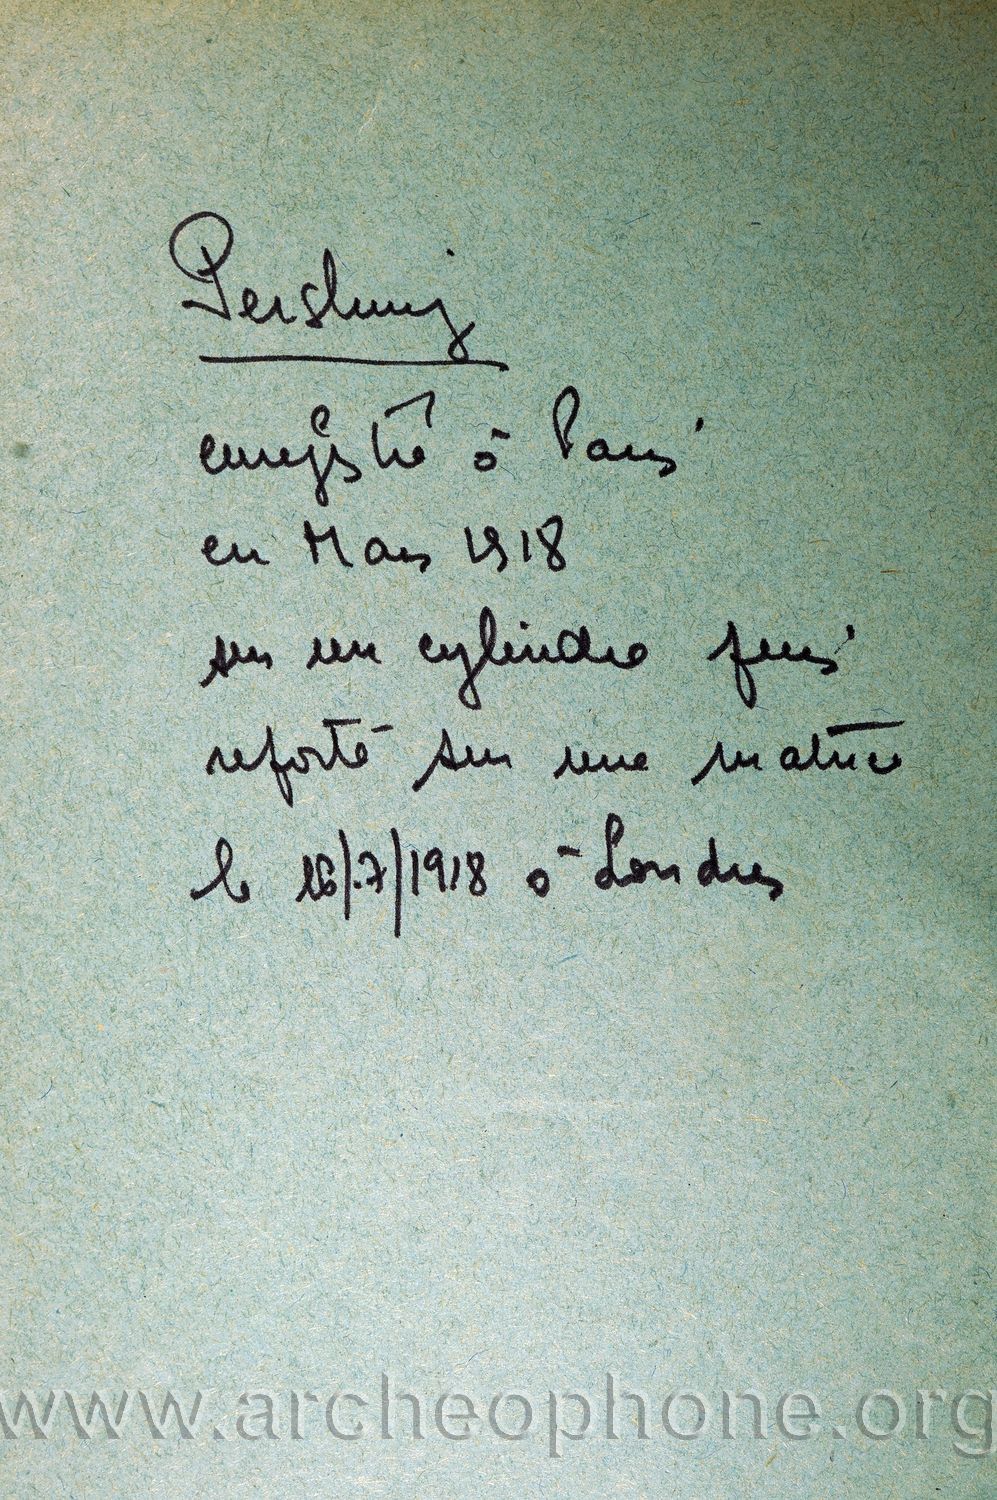 Pershing
enregistré à Paris
en Mars 1918
sur un cylindre puis
reporté sur une matrice
le 16/7/1918 à Londres
www.archeophone.org